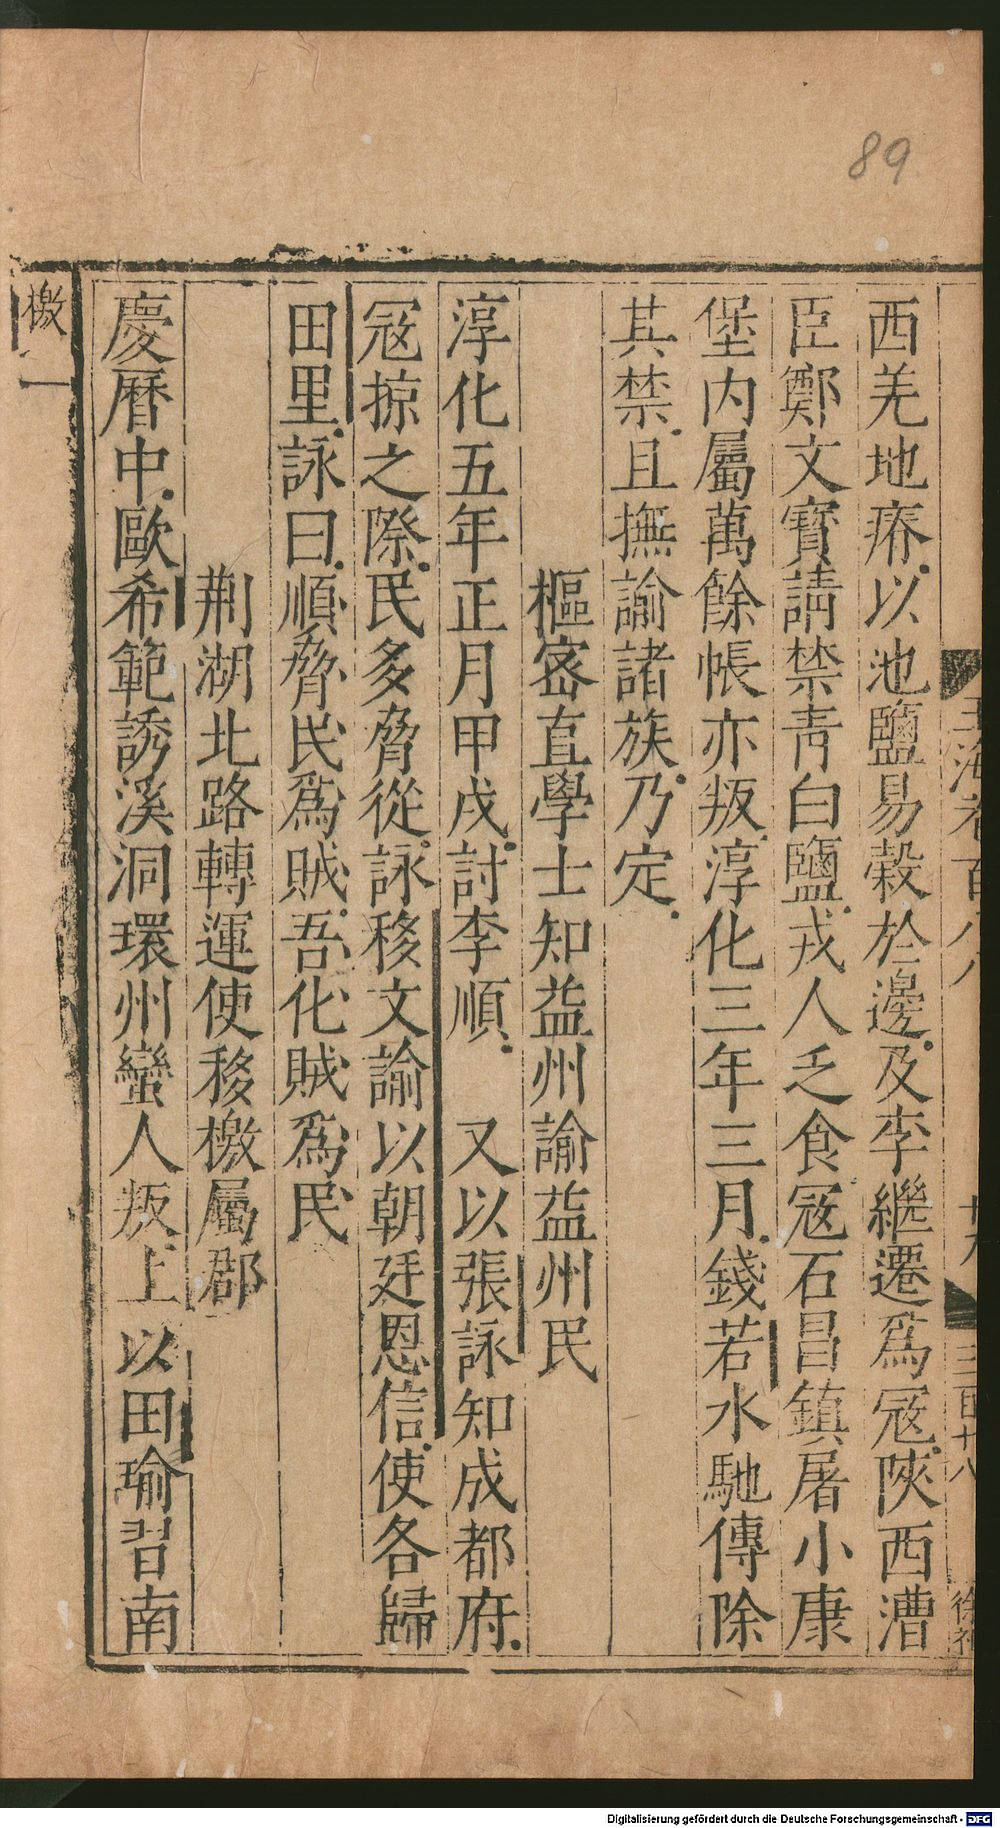 89
西羌地瘠以池鹽易穀於邊及李繼遷爲寇陜西漕
臣鄭文寶請禁靑白鹽戎人乏食寇石昌鎮屠小康
堡内屬萬餘帳亦叛淳化三年三月錢若水馳傳除
其禁且撫諭諸族乃定
樞密直學士知益州諭益州民
淳化五年正月甲戌討李順　又以張詠知成都府
寇掠之際民多脅從詠移文諭以朝廷恩信使各歸
田里詠曰順脅民爲賊吾化賊爲民
荆湖北路轉運使移檄屬郡
慶曆中歐希範誘溪洞環州蠻人叛上以田瑜習南
檄一
Digitalisierung gefördert durch die Deutsche Forschungsgemeinschaft - DFG